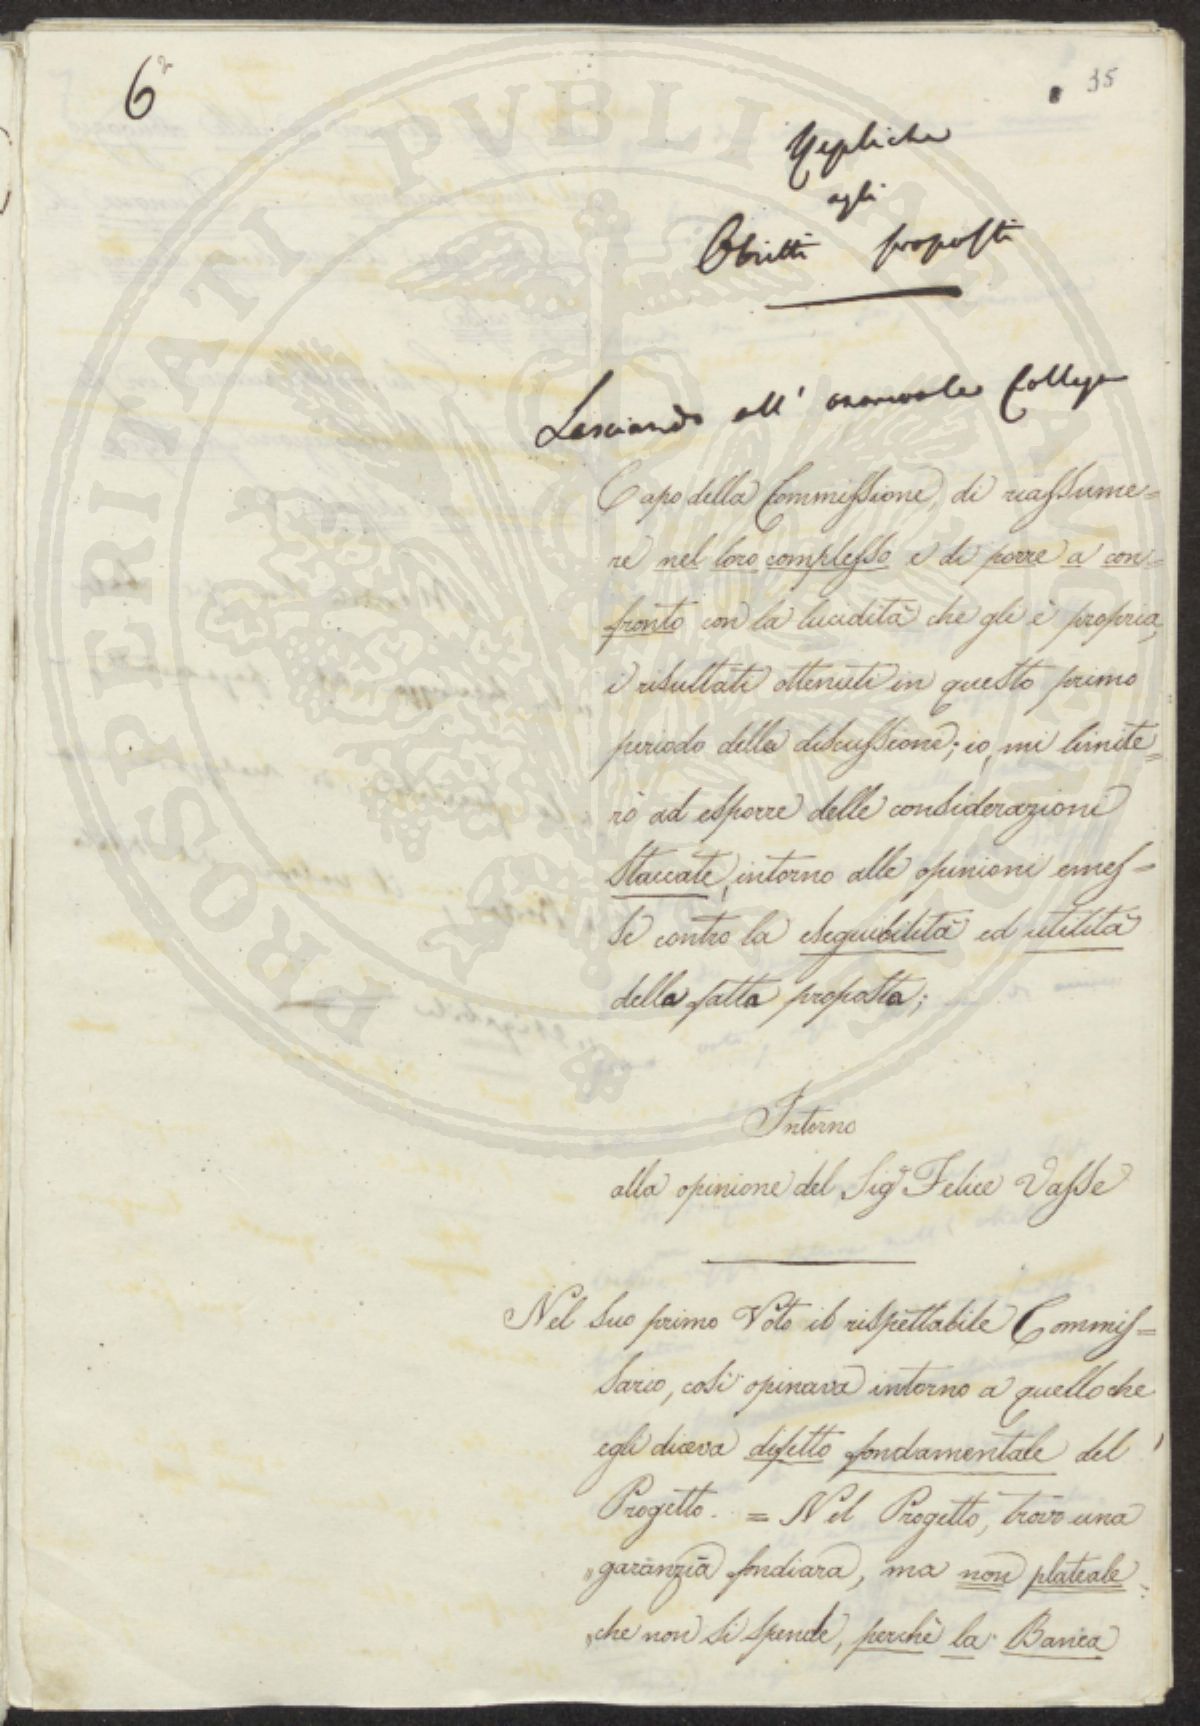 6°
35
Repliche
agli
Obietti proposti
Lasciando all' onorevole Collega
Capo della Commissione, di riassume=
re nel loro complesso e di porre a con=
fronto con la lucidità che gli è propria,
i risultati ottenuti in questo primo
periodo della discussione; io, mi limite=
rò ad esporre delle considerazioni
staccate, intorno alle opinioni emes=
se contro la eseguibilità ed utilità
della fatta proposta;
Intorno
alla opinione del Sigr Felice Vasse
Nel suo primo Voto il rispettabile Commis=
sario, così opinava intorno a quello che
egli diceva difetto fondamentale del
Progetto. = Nel Progetto, trovo una
"garanzia fondiara, ma non plateale
"che non si spende, perchè la Banca
PROSPERITATI PUBLICAE